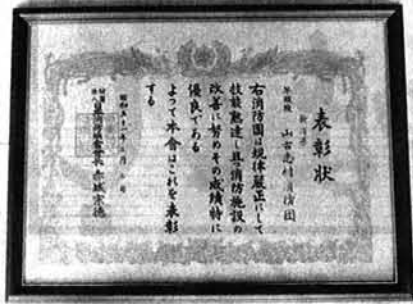 表彰状
新潟県
山古志村消防団
右消防団は規律厳正にして
技能熟達し且消防施設の
改善に努めその成績特に
優良である
よつて本会はこれを表彰
する
昭和五十